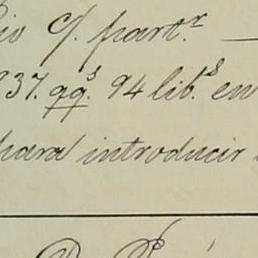 c/. part.r
37. qq.s 94 lib.s en
para introducir